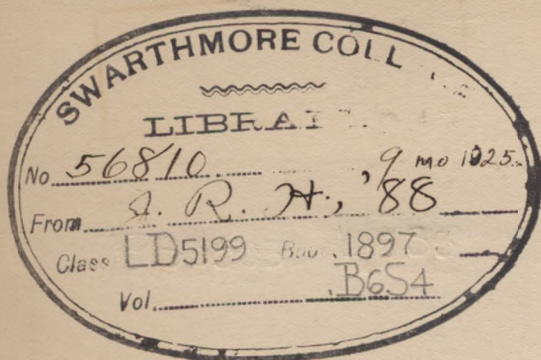 SWARTHMORE COLL
LIBRAR
No 56810. , 9 mo 1925.
From J. R. H., '88
Class LD5199 Book .1897
Vol. .B6S4